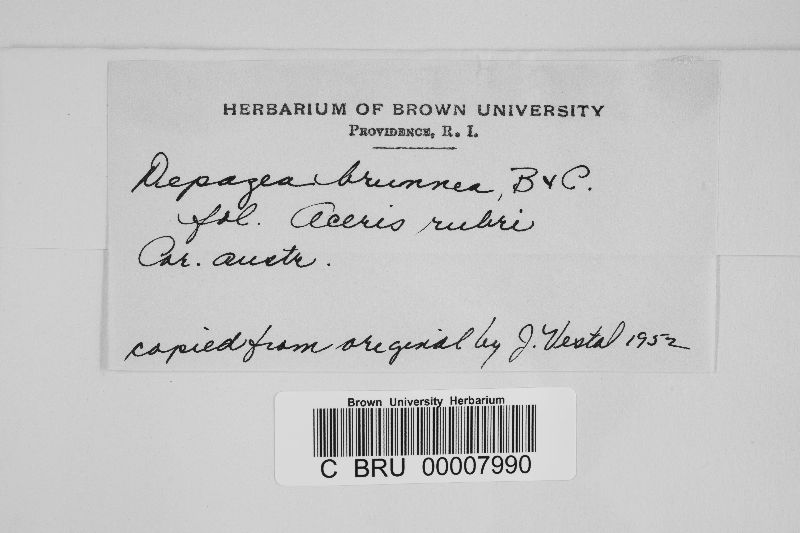 HERBARIUM OF BROWN UNIVERSITY
PROVIDENCE, R. I.
Depazea brunnea, B & C.
fol. Aceris rubri
Car. austr.
copied from original by J. Vestal 1952
Brown University Herbarium
C BRU 00007990